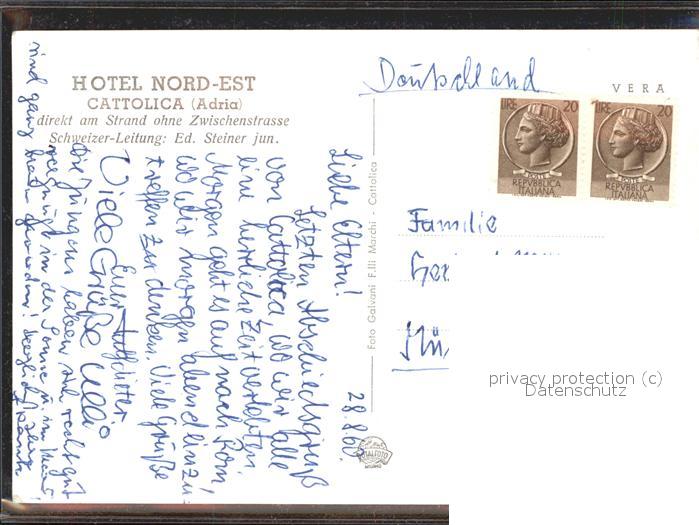 HOTEL NORD-EST
CATTOLICA (Adria)
direkt am Strand ohne Zwischenstrasse
Schweizer-Leitung: Ed. Steiner jun.
Deutschland
VERA
LIRE 20
POSTE
REPVBBLICA
ITALIANA
LIRE 20
POSTE
REPVBBLICA
ITALIANA
Familie
Mün
Foto Galvani F.lli Marchi - Cattolica
28.8.60.
Liebe Eltern!
Letzten Abschiedsgruß
von Cattolica, wo wir alle
eine herrliche Zeit verlebten.
Morgen geht es auf nach Rom,
wo wir morgen abend einzu-
treffen gedenken. Viele Grüße
Euer
Viele Grüße
die Jungens haben sich recht gut
in der Sonne u. im
sind ganz braun geworden! Herzlichst
privacy protection (c)
Datenschutz